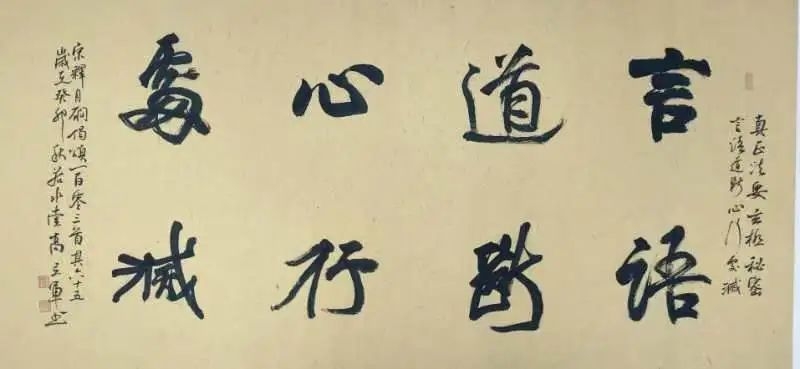 言語
道斷
心行
處滅
真正法要玄極秘密
言語道断心行處滅
宋釋月磵偈頌一百零三首其六十五
歲在癸卯秋若水堂高立軍书